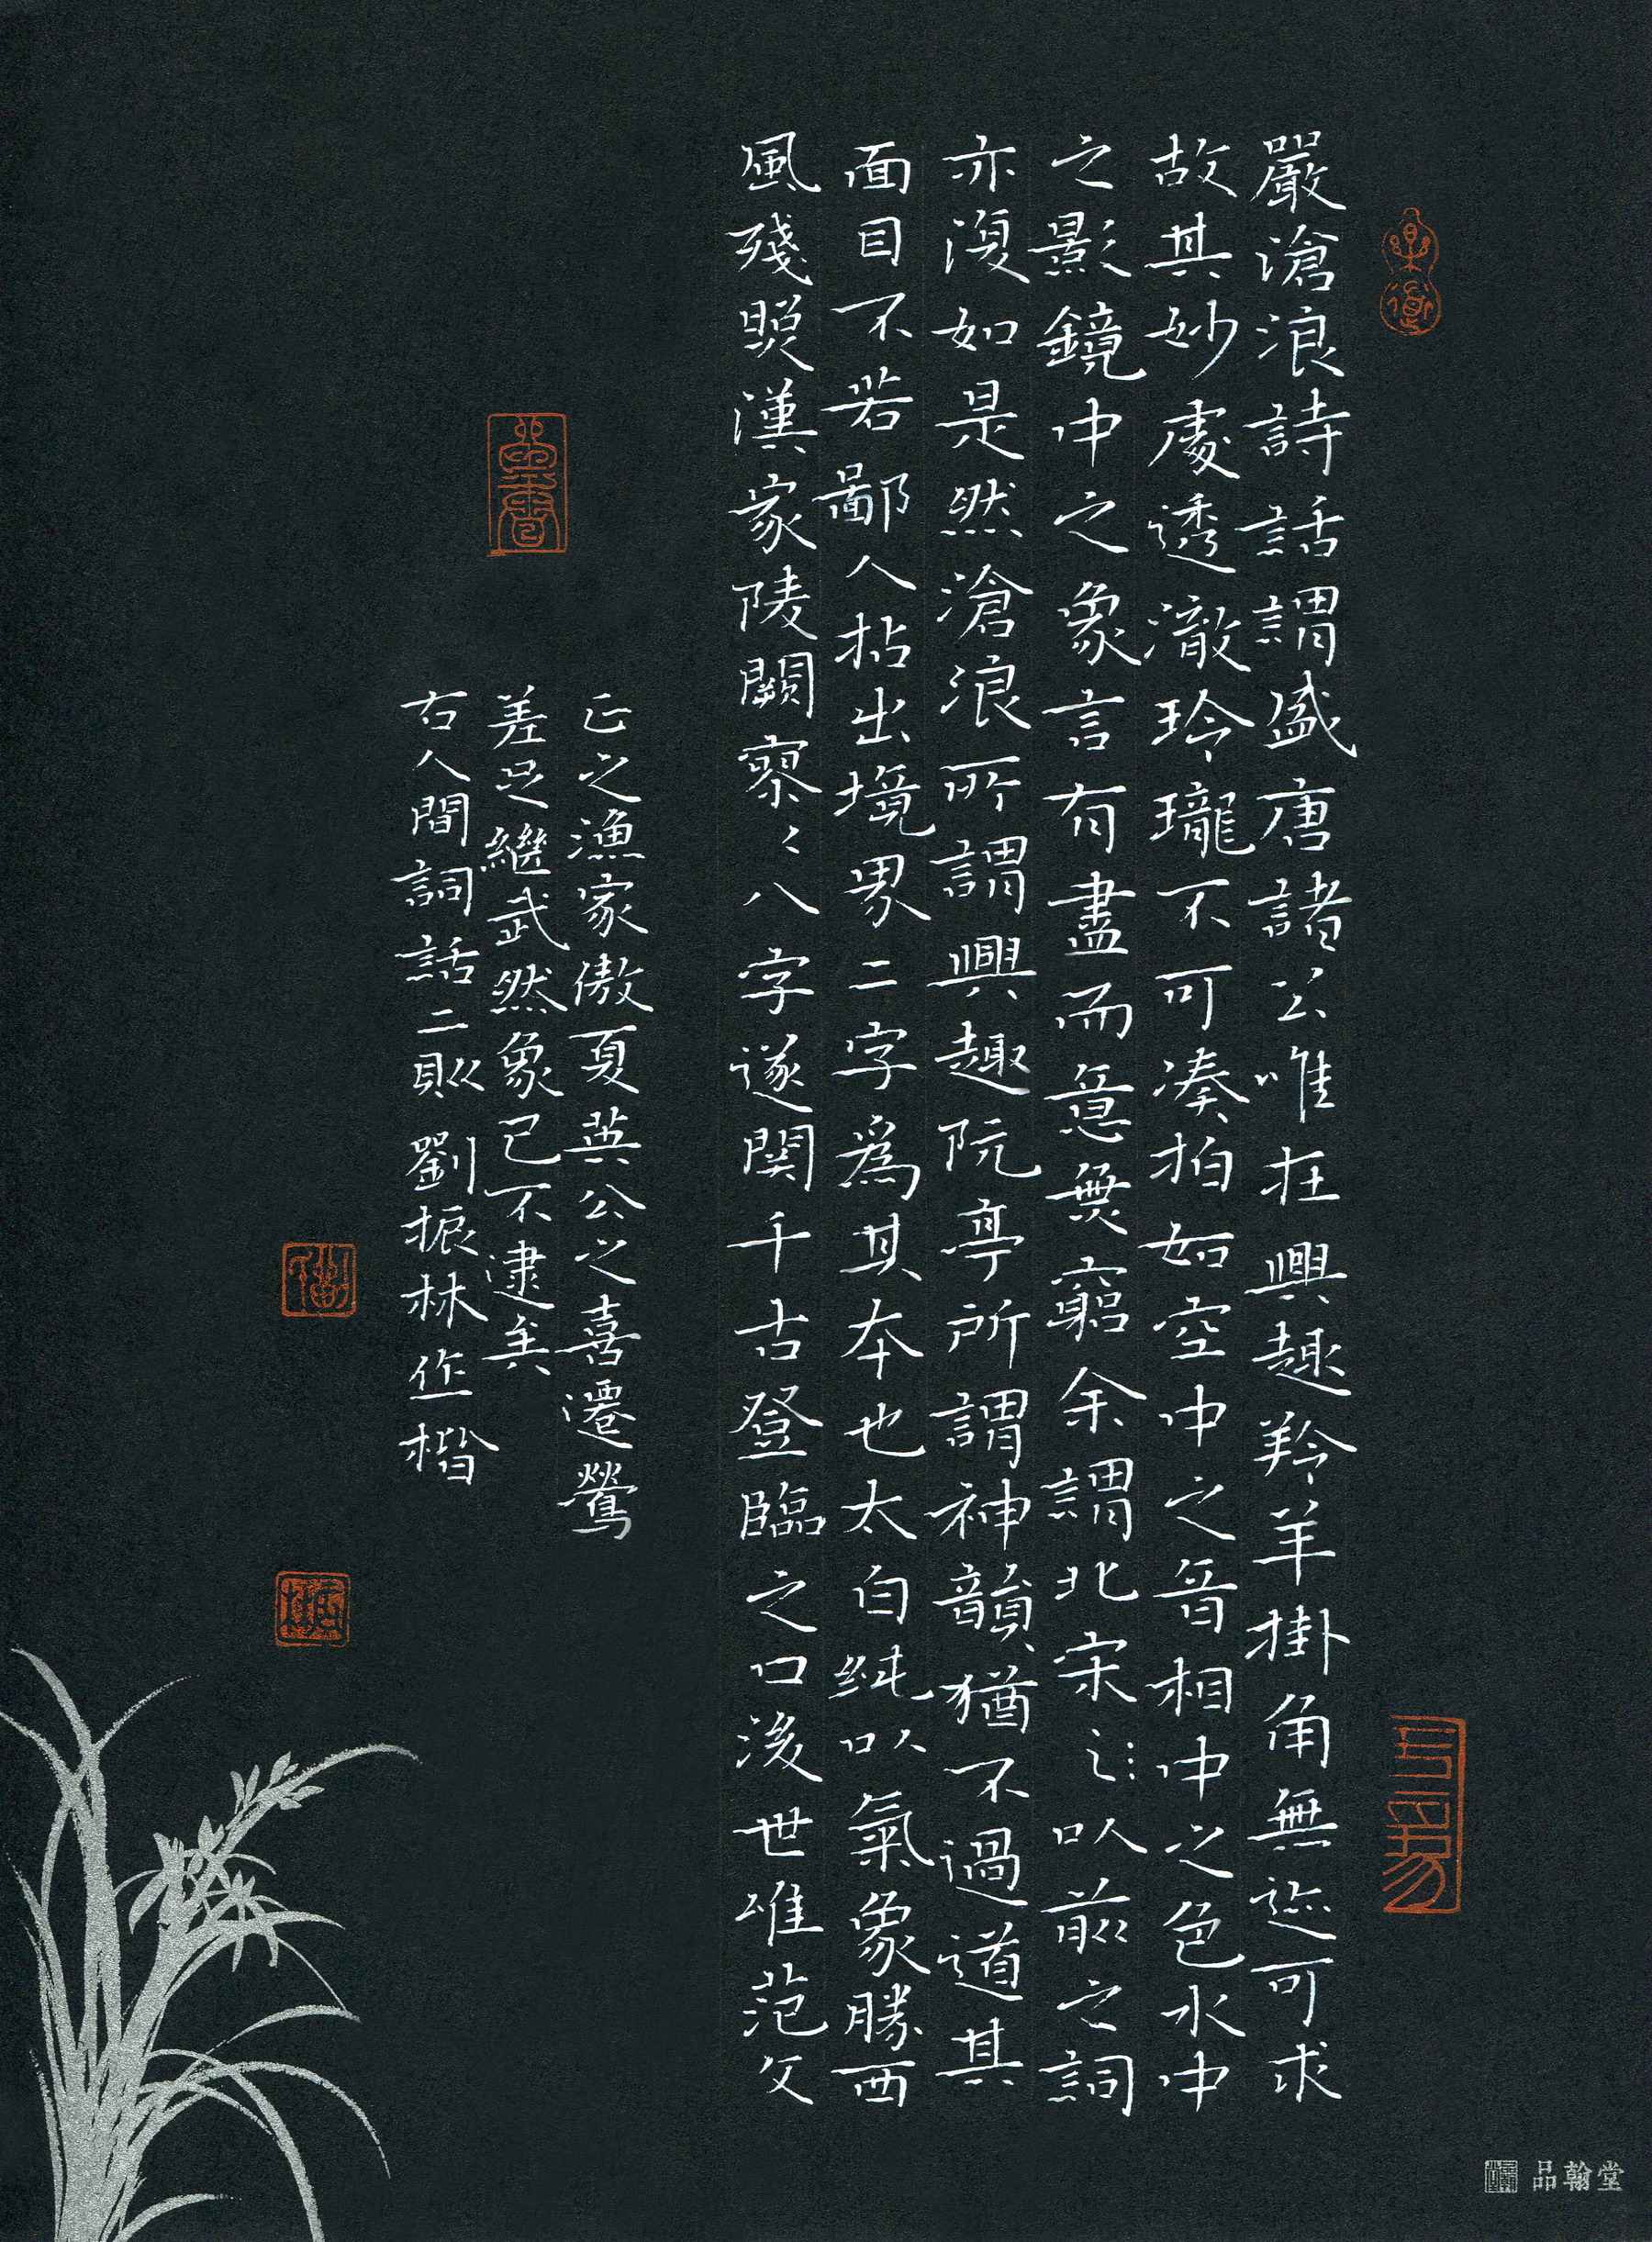 嚴滄浪詩話謂盛唐諸公唯在興趣羚羊掛角無迹可求
故其妙處透澈玲瓏不可湊拍如空中之音相中之色水中
之影鏡中之象言有盡而意無窮余謂北宋以前之詞
亦復如是然滄浪所謂興趣阮亭所謂神韻猶不過道其
面目不若鄙人拈出境界二字爲其本也太白純以氣象勝西
風殘照漢家陵闕寥〻八字遂関千古登臨之口後世唯范文
正之漁家傲夏英公之喜遷鶯
差足繼武然象已不逮矣
右人間詞話二則劉振林作楷
品翰堂